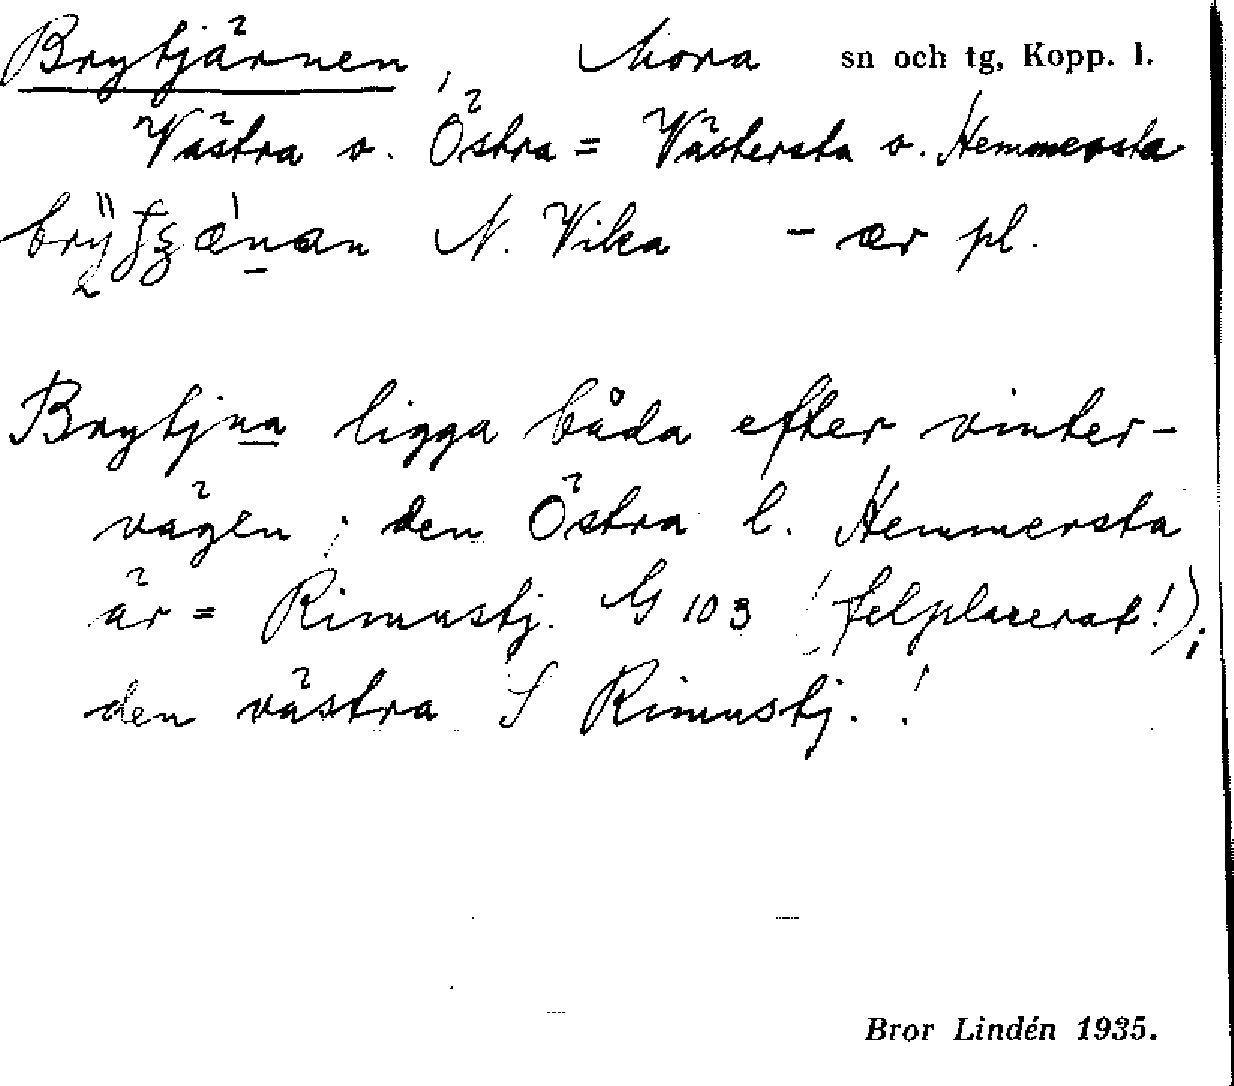 Brytjärnen, Mora sn och tg, Kopp. l.
Västra o. Östra = Västersta o. Hemmersta
N. Vika - ær pl.
Brytjna ligga båda efter vinter-
vägen; den Östra l. Hemmersta
är = Rimustj. G 103 (felplacerat!);
den västra S Rimustj.!
Bror Lindén 1935.